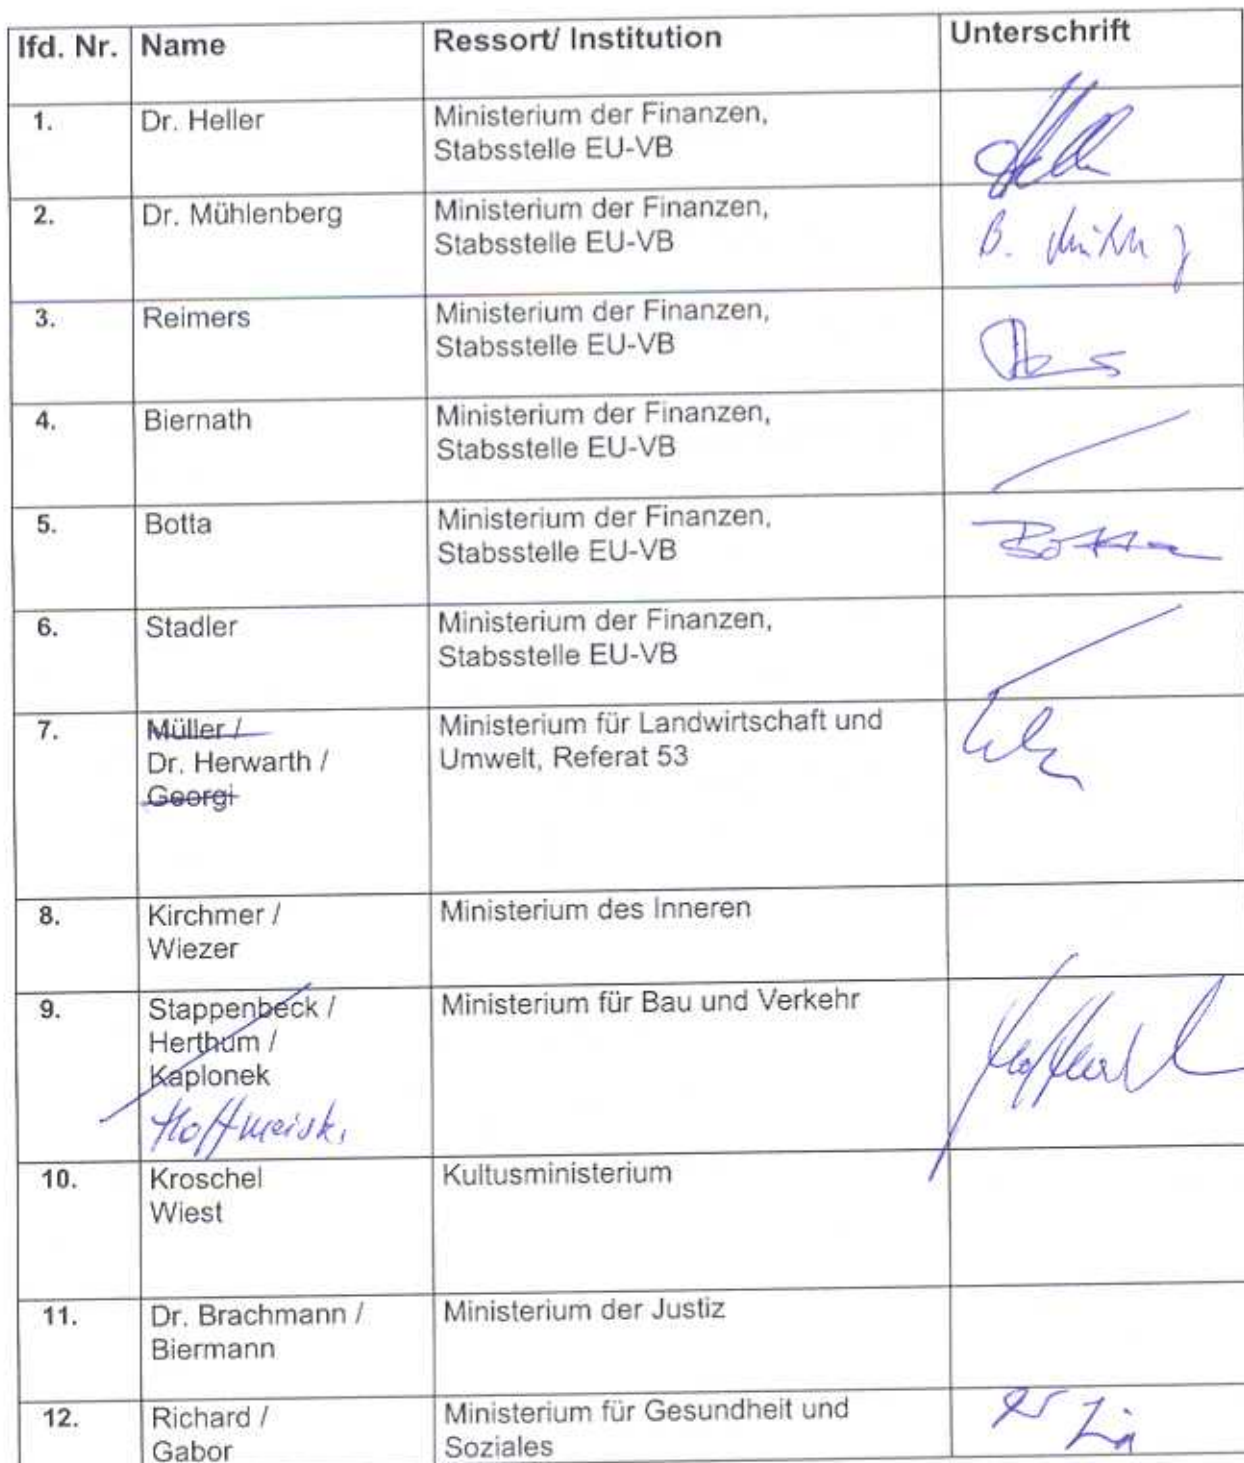 lfd. Nr. Name Ressort/ Institution Unterschrift
1. Dr. Heller Ministerium der Finanzen,
Stabsstelle EU-VB
2. Dr. Mühlenberg Ministerium der Finanzen,
Stabsstelle EU-VB
B.
3. Reimers Ministerium der Finanzen,
Stabsstelle EU-VB
4. Biernath Ministerium der Finanzen,
Stabsstelle EU-VB
5. Botta Ministerium der Finanzen,
Stabsstelle EU-VB
Botta
6. Stadler Ministerium der Finanzen,
Stabsstelle EU-VB
7. Müller / Ministerium für Landwirtschaft und
Dr. Herwarth / Umwelt, Referat 53
Georgi
8. Kirchmer / Ministerium des Inneren
Wiezer
9. Stappenbeck / Ministerium für Bau und Verkehr
Herthum /
Kaplonek
10. Kroschel Kultusministerium
Wiest
11. Dr. Brachmann / Ministerium der Justiz
Biermann
12. Richard / Ministerium für Gesundheit und
Gabor Soziales